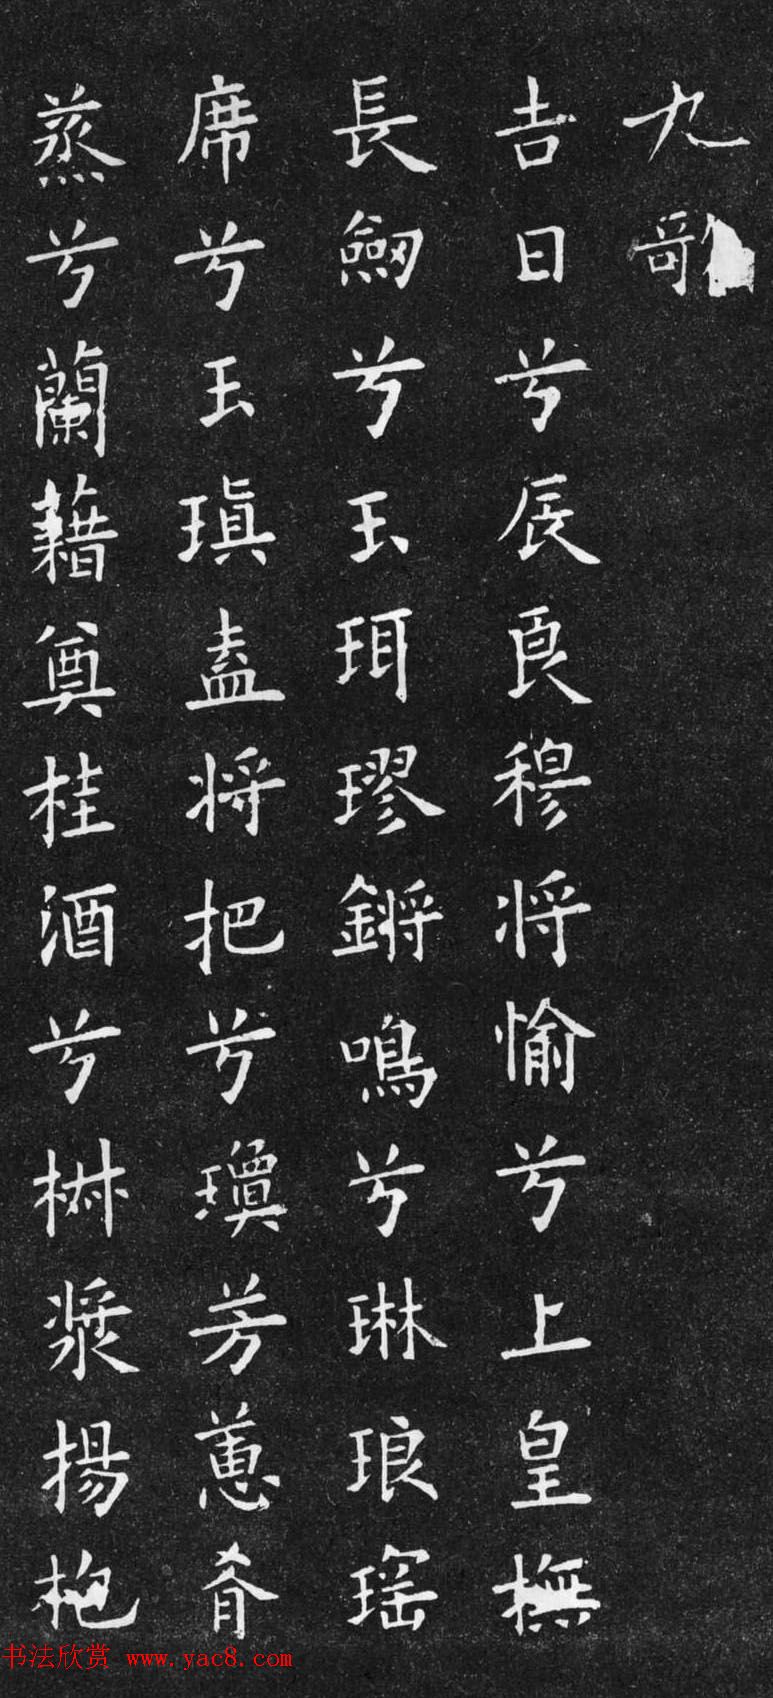 九歌
吉日兮辰良穆将愉兮上皇撫
長劒兮玉珥璆鏘鳴兮琳琅瑤
席兮玉瑱盍将把兮瓊芳蕙肴
蒸兮蘭藉奠桂酒兮椒漿揚枹
书法欣赏 www.yac8.com